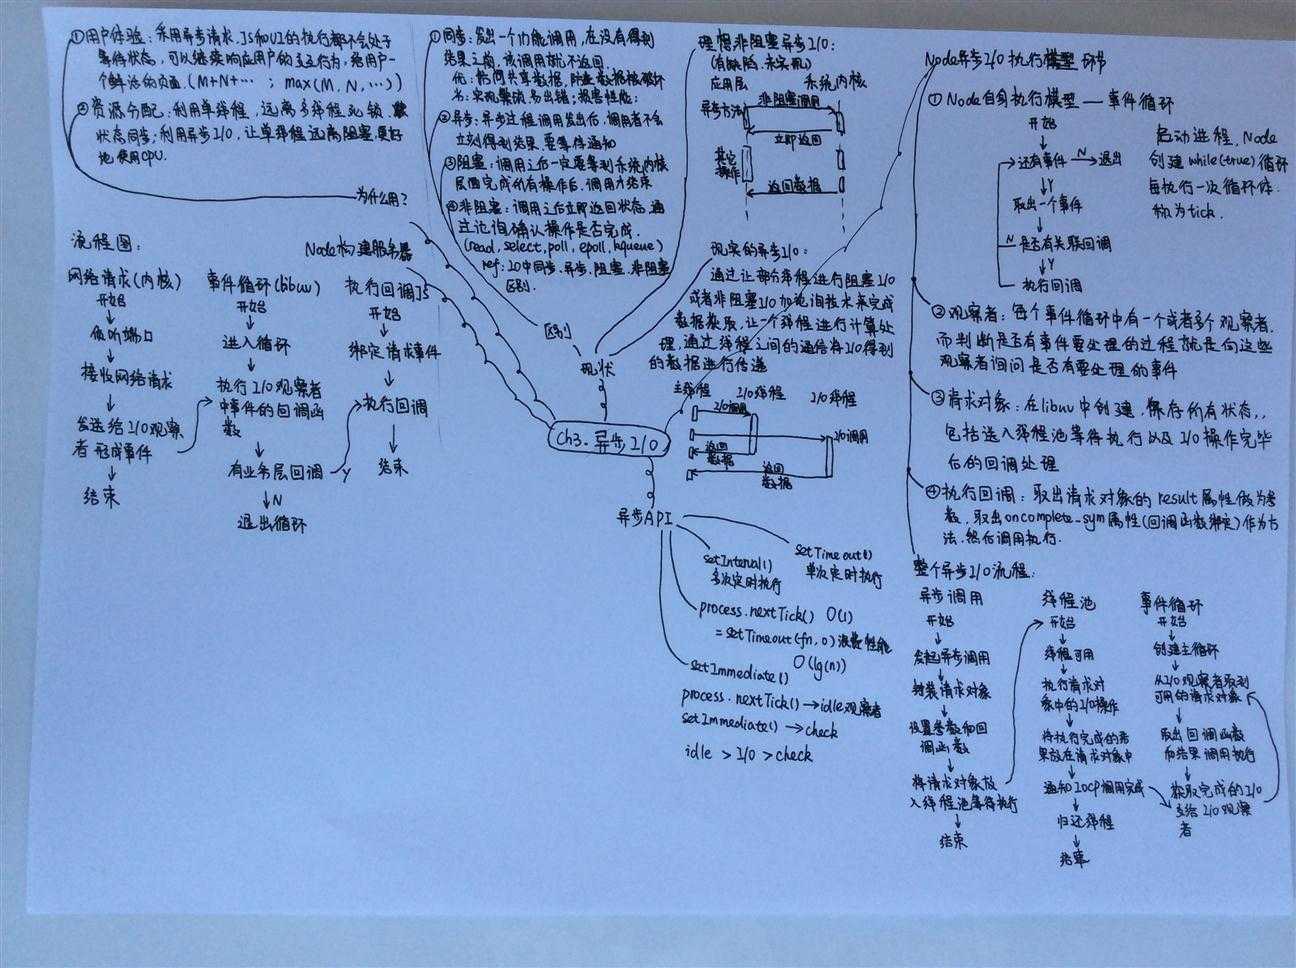 ①用户体验：采用异步请求,JS和UI的执行都不会处于
等待状态,可以继续响应用户的交互行为,给用户一
个鲜活的页面(M+N+… ; max(M, N, …))
②资源分配：利用单线程,远离多线程死锁、
状态同步;利用异步I/O,让单线程远离阻塞,更好
地使用CPU.
为什么用?
①同步：发出一个功能调用,在没有得到
结果之前,该调用就不返回.
②异步：异步过程调用发出后,调用者不会
立刻得到结果.要等待通知
③阻塞：调用之后一定要等到系统内核
层面完成所有操作后,调用才结束
④非阻塞：调用之后立即返回状态.通
过轮询确认操作是否完成.
(read, select, poll, epoll, kqueue)
ref：IO中同步、异步、阻塞、非阻塞
区别.
区别
理想非阻塞异步I/O：
(有缺陷,未实现)
应用层 系统内核
异步方法
非阻塞调用
立即返回
其它
操作
返回数据
现实的异步I/O：
通过让部分线程进行阻塞I/O
或者非阻塞I/O加轮询技术来完成
数据获取,让一个线程进行计算处
理,通过线程之间的通信将I/O得到
的数据进行传递
主线程 I/O线程 I/O线程
I/O调用
I/O调用
返回
数据
返回
数据
现状
Ch3. 异步I/O
Node构建服务器
流程图：
网络请求(内核)
开始
侦听端口
接收网络请求
发送给I/O观察
者形成事件
结束
事件循环(libuv)
开始
进入循环
执行I/O观察者
中事件的回调函
数
有业务层回调
Y
N
退出循环
执行回调JS
开始
绑定请求事件
执行回调
结束
异步API
setInterval()
多次定时执行
setTimeout()
单次定时执行
process.nextTick() O(1)
=setTimeout(fn, 0) 浪费性能
O(lg(n))
setImmediate()
process.nextTick()→idle观察者
setImmediate()→check
idle > I/O > check
Node异步I/O执行模型 环节
①Node自身执行模型—事件循环
开始
还有事件
N
退出
Y
取出一个事件
N
是否有关联回调
Y
执行回调
启动进程, Node
创建while(true)循环
每执行一次循环体.
称为tick.
②观察者：每个事件循环中有一个或者多个观察者,
而判断是否有事件要处理的过程就是向这些
观察者询问是否有要处理的事件
③请求对象：在libuv中创建,保存所有状态,,
包括送入线程池等待执行以及I/O操作完毕
后的回调处理
④执行回调：取出请求对象的result属性做为参
数,取出oncomplete_sym属性(回调函数绑定)作为方
法.然后调用执行.
整个异步I/O流程：
异步调用
开始
发起异步调用
封装请求对象
设置参数和回
调函数
将请求对象放
入线程池等待执行
结束
线程池
开始
线程可用
执行请求对
象中的I/O操作
将执行完成的结
果放在请求对象中
通知IOCP调用完成
归还线程
结束
事件循环
开始
创建主循环
从I/O观察者取到
可用的请求对象
取出回调函数
和结果调用执行
获取完成的I/O
交给I/O观察
者